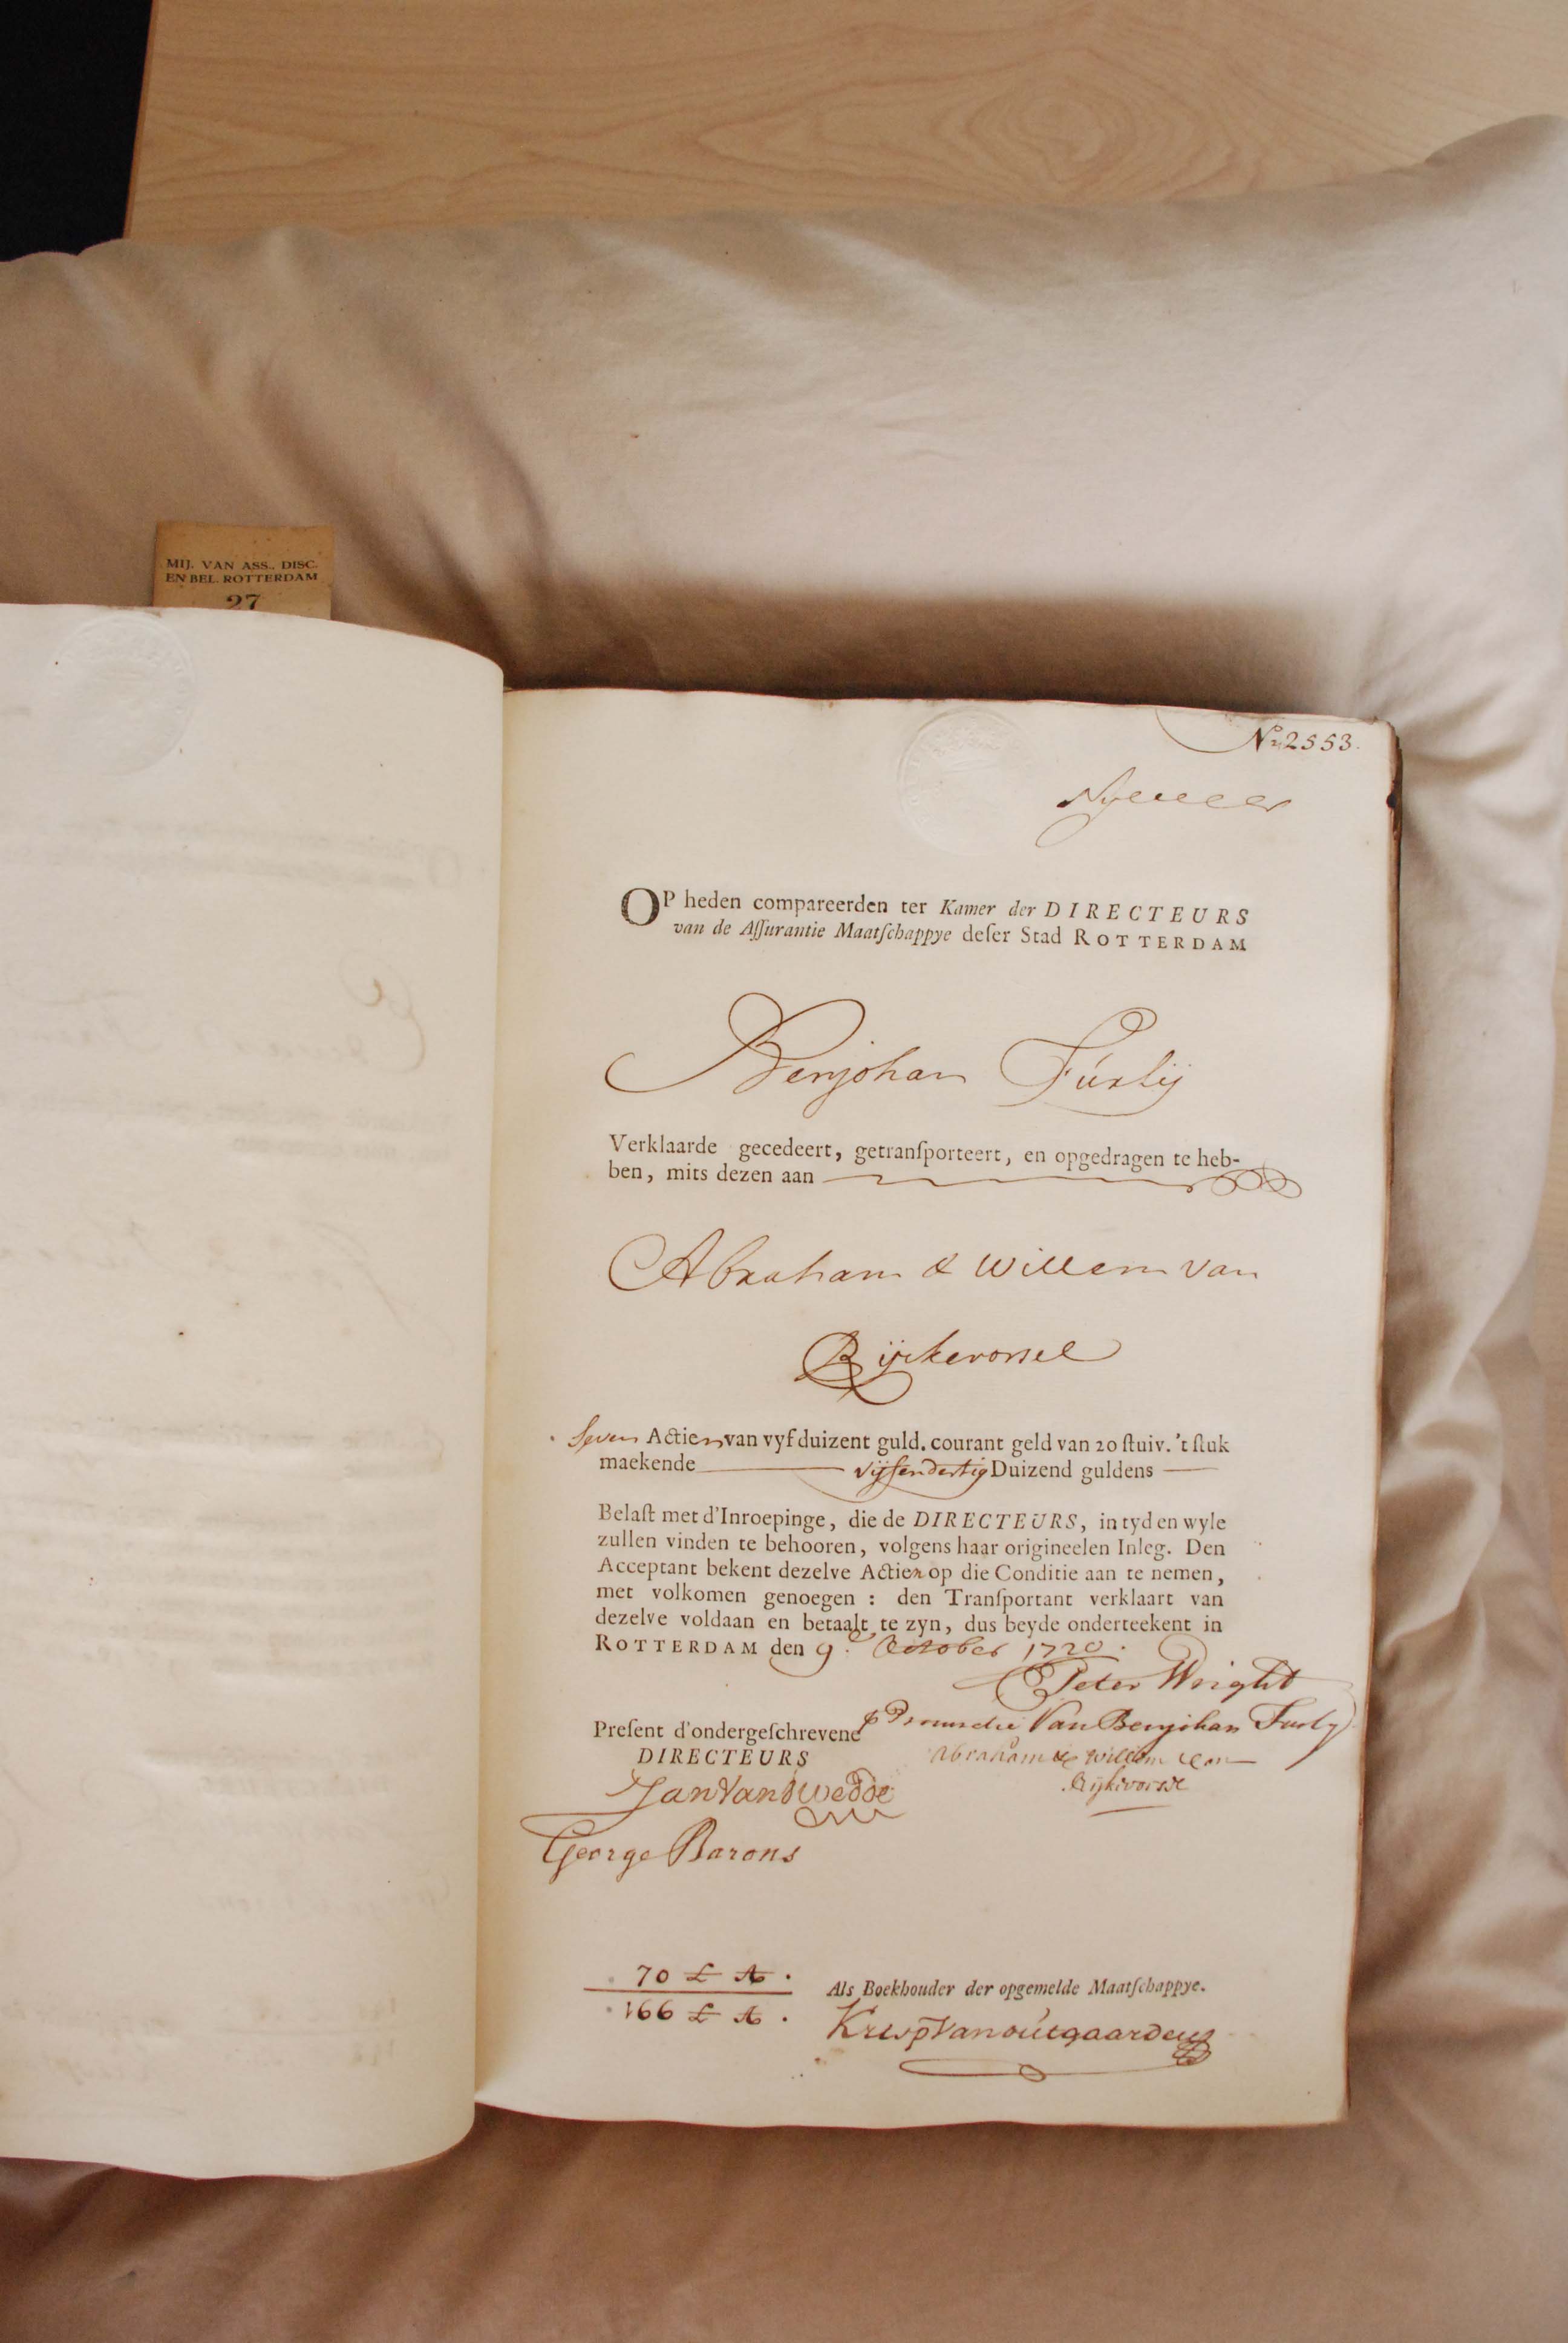 MIJ. VAN ASS., DISC.
EN BEL. ROTTERDAM
27
No 2553.
OP heden compareerden ter Kamer der DIRECTEURS
van de Aſſurantie Maatſchappye deſer Stad ROTTERDAM
Benjohan Fúrlij
Verklaarde gecedeert, getranſporteert, en opgedragen te heb-
ben, mits dezen aan
Abraham & Willem van
Rijckevorsel
Seven Actien van vyf duizent guld. courant geld van 20 ſtuiv. 't ſtuk
maekende vijfendertig Duizend guldens
Belaſt met d'Inroepinge, die de DIRECTEURS, in tyd en wyle
zullen vinden te behooren, volgens haar origineelen Inleg. Den
Acceptant bekent dezelve Actien op die Conditie aan te nemen,
met volkomen genoegen : den Tranſportant verklaart van
dezelve voldaan en betaalt te zyn, dus beyde onderteekent in
ROTTERDAM den 9e October 1720.
Peter Wright
Van Benjohan Furly
Preſent d'ondergeſchrevene
DIRECTEURS
Abraham & Willem van
Rijkevorsel
Jan Van Dwedde
George Barons
70 £
166 £
Als Boekhouder der opgemelde Maatſchappye.